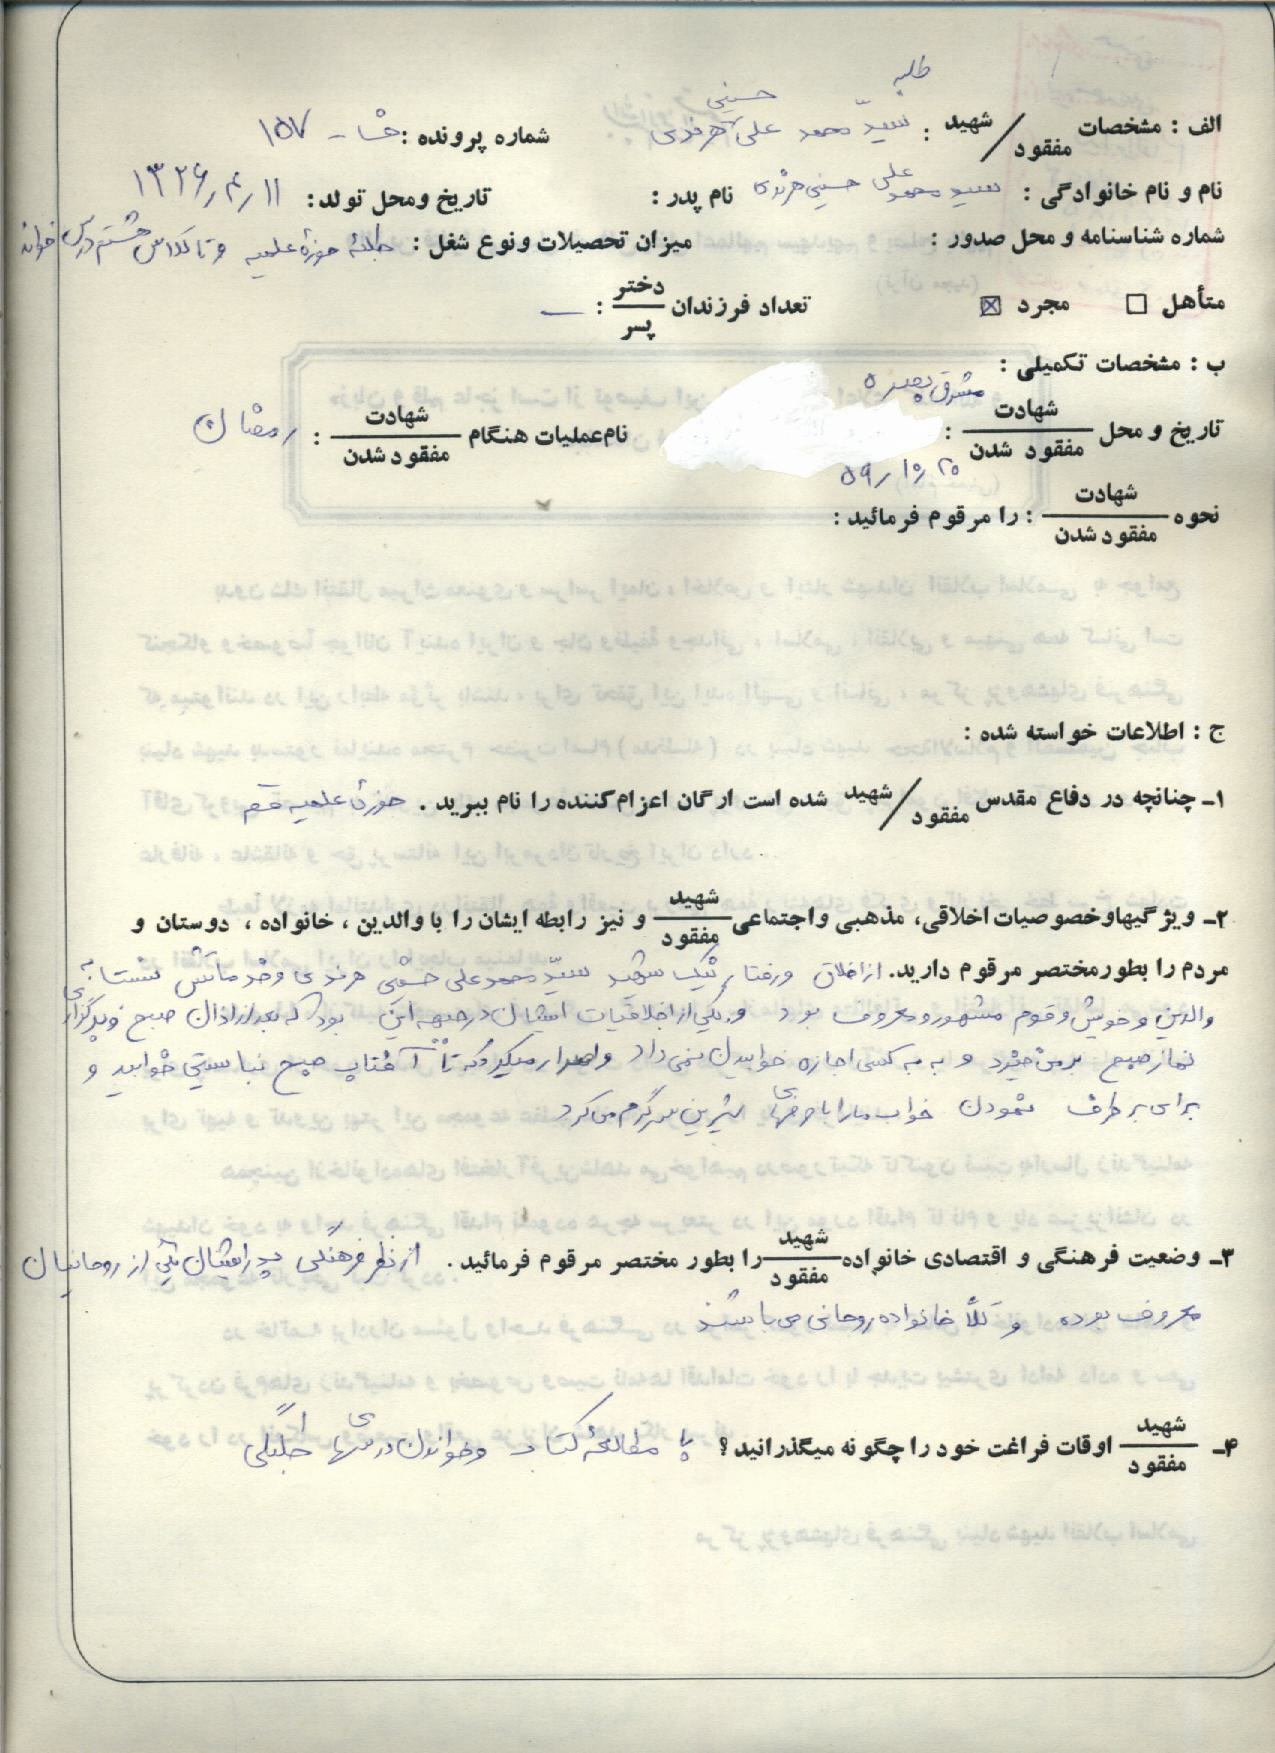 طلبه
الف : مشخصات شهید / مفقود : سید محمد علی حسینی هرندی شماره پرونده : خا - ۱۵۷
نام و نام خانوادگی : سید محمد علی حسینی هرندی نام پدر : تاریخ ومحل تولد : ۱۳۲۶/۴/۱۱
شماره شناسنامه و محل صدور : میزان تحصیلات و نوع شغل : طلبهٔ حوزهٔ علمیه و تا کلاس هشتم درس خوانده
متأهل ☐ مجرد ☒ تعداد فرزندان دختر / پسر : —
ب : مشخصات تکمیلی :
مشرق بصره
تاریخ و محل شهادت / مفقود شدن : نام عملیات هنگام شهادت / مفقود شدن : رمضان
۵۹/۱۰/۲۰
نحوه شهادت / مفقود شدن : را مرقوم فرمائید :
ج : اطلاعات خواسته شده :
۱ـ چنانچه در دفاع مقدس شهید / مفقود شده است ارگان اعزام کننده را نام ببرید . حوزهٔ علمیه قم
۲ـ ویژگیها و خصوصیات اخلاقی، مذهبی و اجتماعی شهید / مفقود و نیز رابطه ایشان را با والدین ، خانواده ، دوستان و
مردم را بطور مختصر مرقوم دارید. از اخلاق و رفتار نیک شهید سید محمد علی حسینی هرندی و خدماتش نسبت به
والدین و خویش و قوم مشهور و معروف بود و یکی از اخلاقیات ایشان در جبهه این بود که بعد از اذان صبح و برگزاری
نماز صبح بر می خیزد و به کسی اجازه خوابیدن نمی داد و اصرار میکرد که تا آفتاب صبح نبایستی خوابید و
برای بر طرف نمودن خواب ما را با حرفهای شیرین سرگرم می کرد
۳ـ وضعیت فرهنگی و اقتصادی خانواده شهید / مفقود را بطور مختصر مرقوم فرمائید . از نظر فرهنگی پدر ایشان یکی از روحانیان
معروف بوده و کلاً خانواده روحانی می باشند
۴ـ شهید / مفقود اوقات فراغت خود را چگونه میگذرانید ؟ با مطالعهٔ کتاب و خواندن درسهای